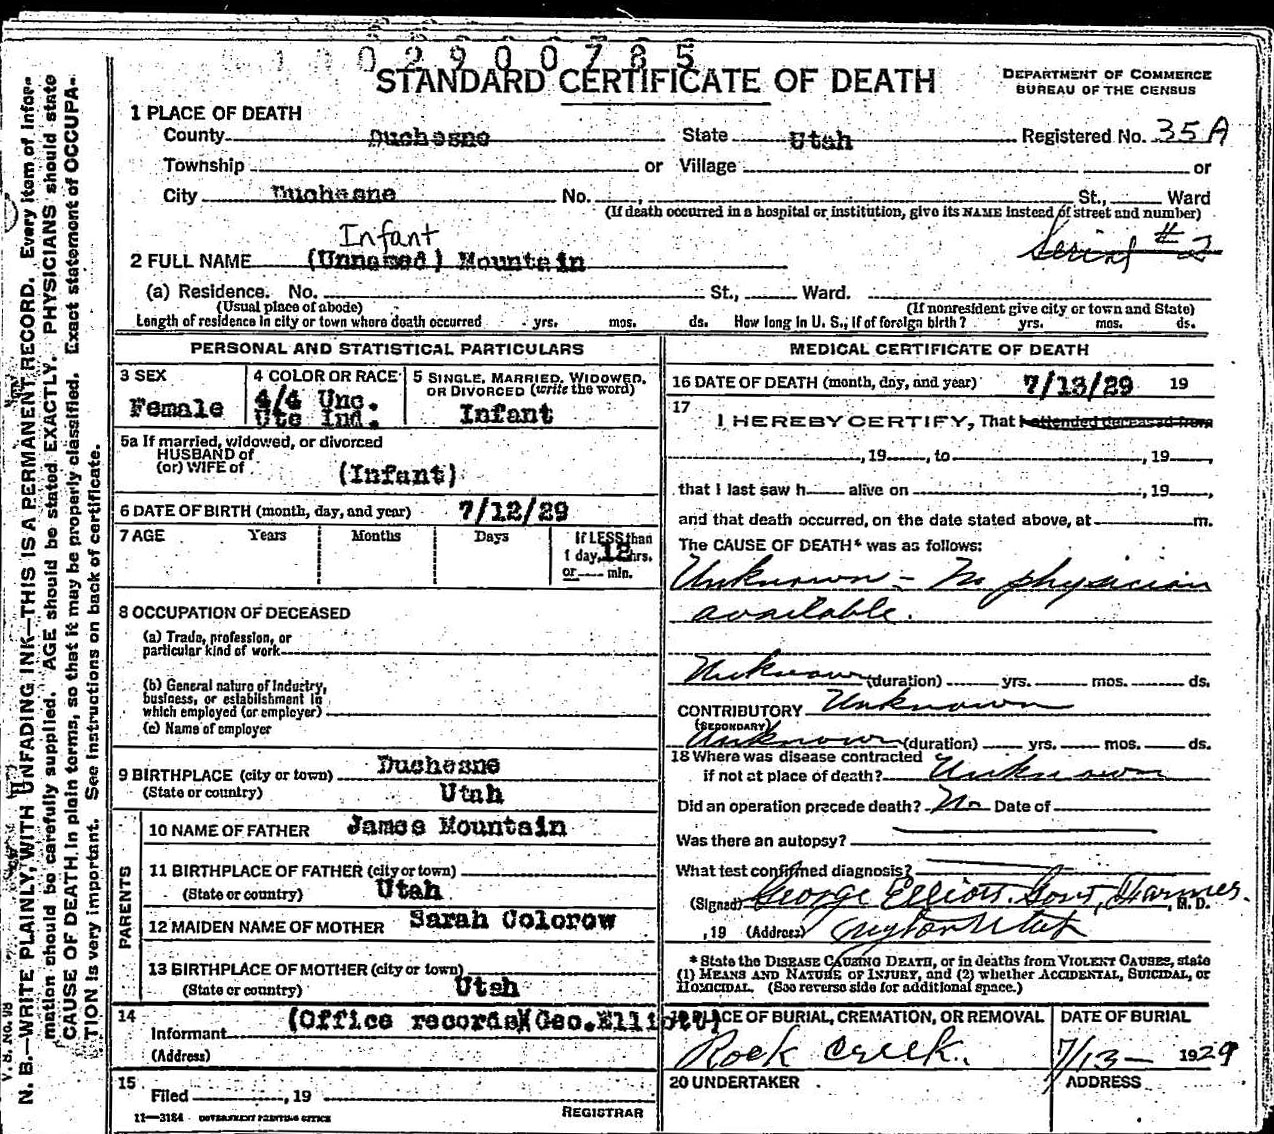 02900785
STANDARD CERTIFICATE OF DEATH
DEPARTMENT OF COMMERCE
BUREAU OF THE CENSUS
1 PLACE OF DEATH
County Duchesne State Utah Registered No. 35A
Township or Village or
City Duchesne No. , St., Ward
(If death occurred in a hospital or institution, give its NAME instead of street and number)
Infant
Serial # 2
2 FULL NAME (Unnamed) Mountain
(a) Residence. No. St., Ward.
(Usual place of abode) (If nonresident give city or town and State)
Length of residence in city or town where death occurred yrs. mos. ds. How long in U. S., if of foreign birth? yrs. mos. ds.
PERSONAL AND STATISTICAL PARTICULARS
3 SEX
Female
4 COLOR OR RACE
4/4 Unc.
Ute Ind.
5 SINGLE, MARRIED, WIDOWED,
OR DIVORCED (write the word)
Infant
5a If married, widowed, or divorced
HUSBAND of
(or) WIFE of (Infant)
6 DATE OF BIRTH (month, day, and year) 7/12/29
7 AGE Years Months Days If LESS than
1 day, 12 hrs.
or min.
8 OCCUPATION OF DECEASED
(a) Trade, profession, or
particular kind of work
(b) General nature of Industry,
business, or establishment in
which employed (or employer)
(c) Name of employer
9 BIRTHPLACE (city or town) Duchesne
(State or country) Utah
PARENTS
10 NAME OF FATHER James Mountain
11 BIRTHPLACE OF FATHER (city or town)
(State or country) Utah
12 MAIDEN NAME OF MOTHER Sarah Colorow
13 BIRTHPLACE OF MOTHER (city or town)
(State or country) Utah
14
Informant (Office records)(Geo.Elliott)
(Address)
15
Filed , 19
REGISTRAR
11—3184 GOVERNMENT PRINTING OFFICE
MEDICAL CERTIFICATE OF DEATH
16 DATE OF DEATH (month, day, and year) 7/13/29 19
17
I HEREBY CERTIFY, That I attended deceased from
, 19 , to , 19 ,
that I last saw h alive on , 19 ,
and that death occurred, on the date stated above, at m.
The CAUSE OF DEATH* was as follows:
Unknown - No physician
available.
Unknown (duration) yrs. mos. ds.
CONTRIBUTORY Unknown
(SECONDARY)
Unknown (duration) yrs. mos. ds.
18 Where was disease contracted
if not at place of death? Unknown
Did an operation precede death? No Date of
Was there an autopsy?
What test confirmed diagnosis?
(Signed) George Elliott Govt, Farmer, M.D.
, 19 (Address) Utah
* State the DISEASE CAUSING DEATH, or in deaths from VIOLENT CAUSES, state
(1) MEANS AND NATURE OF INJURY, and (2) whether ACCIDENTAL, SUICIDAL, or
HOMICIDAL. (See reverse side for additional space.)
PLACE OF BURIAL, CREMATION, OR REMOVAL
Rock Creek.
DATE OF BURIAL
7/13- 1929
20 UNDERTAKER
ADDRESS
V. S. No. 98
N. B.—WRITE PLAINLY, WITH UNFADING INK—THIS IS A PERMANENT RECORD. Every item of infor-
mation should be carefully supplied. AGE should be stated EXACTLY. PHYSICIANS should state
CAUSE OF DEATH in plain terms, so that it may be properly classified. Exact statement of OCCUPA-
TION is very important. See instructions on back of certificate.